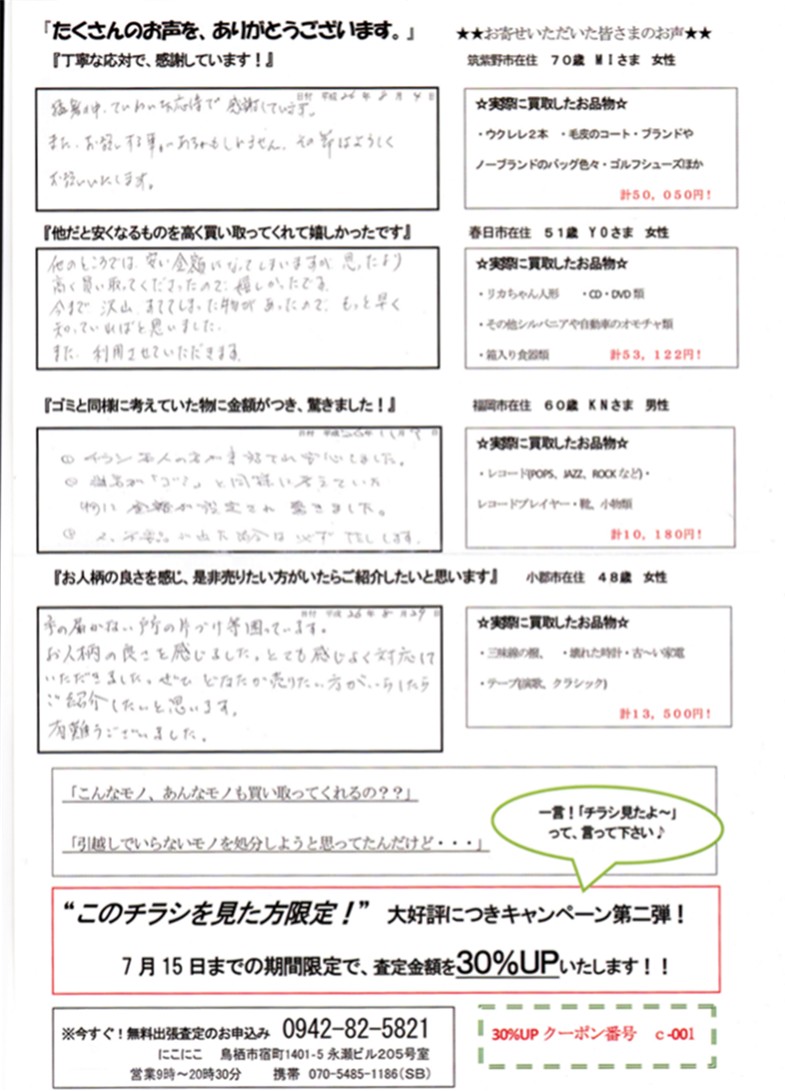 『たくさんのお声を、ありがとうございます。』 ★★お寄せいただいた皆さまのお声★★
『丁寧な応対で、感謝しています！』 筑紫野市在住 70歳 MIさま 女性
日付 平成26年8月4日
猛暑の中、ていねいな応待で感謝しています。
また、お願いする事があるかもしれません、その節はよろしく
お願いいたします。
☆実際に買取したお品物☆
・ウクレレ2本 ・毛皮のコート・ブランドや
ノーブランドのバッグ色々・ゴルフシューズほか
計50,050円！
『他だと安くなるものを高く買い取ってくれて嬉しかったです』 春日市在住 51歳 YOさま 女性
他のところでは、安い金額になってしまいますが、思ったより
高く買い取ってくださったので、嬉しかったです。
今まで、沢山、すててしまった物があったので、もっと早く
知っていればと思いました。
また、利用させていただきます。
☆実際に買取したお品物☆
・リカちゃん人形 ・CD・DVD類
・その他シルバニアや自動車のオモチャ類
・箱入り食器類 計53,122円！
『ゴミと同様に考えていた物に金額がつき、驚きました！』 福岡市在住 60歳 KNさま 男性
① チラシ 本人の名が
安心しました。
② 「ゴミ」と同様に考えていた
物に金額が設定され 驚きました。
③
☆実際に買取したお品物☆
・レコード(POPS、JAZZ、ROCKなど)・
レコードプレイヤー・靴、小物類
計10,180円！
『お人柄の良さを感じ、是非売りたい方がいたらご紹介したいと思います』 小郡市在住 48歳 女性
日付 平成26年8月29日
手の届かない所の片づけ等困っています。
お人柄の良さを感じました。とても感じよく対応して
いただきました。ぜひ、どなたか売りたい方がいらしたら
ご紹介したいと思います。
有難うございました。
☆実際に買取したお品物☆
・三味線の撥、 ・壊れた時計・古～い家電
・テープ(演歌、クラシック)
計13,500円！
「こんなモノ、あんなモノも買い取ってくれるの？？」
「引越しでいらないモノを処分しようと思ってたんだけど・・・」
一言！「チラシ見たよ～」
って、言って下さい♪
“このチラシを見た方限定！” 大好評につきキャンペーン第二弾！
7月15日までの期間限定で、査定金額を30%UPいたします！！
※今すぐ！無料出張査定のお申込み 0942-82-5821
にこにこ 鳥栖市宿町1401-5 永瀬ビル205号室
営業9時～20時30分 携帯 070-5485-1186(SB)
30%UP クーポン番号 c-001